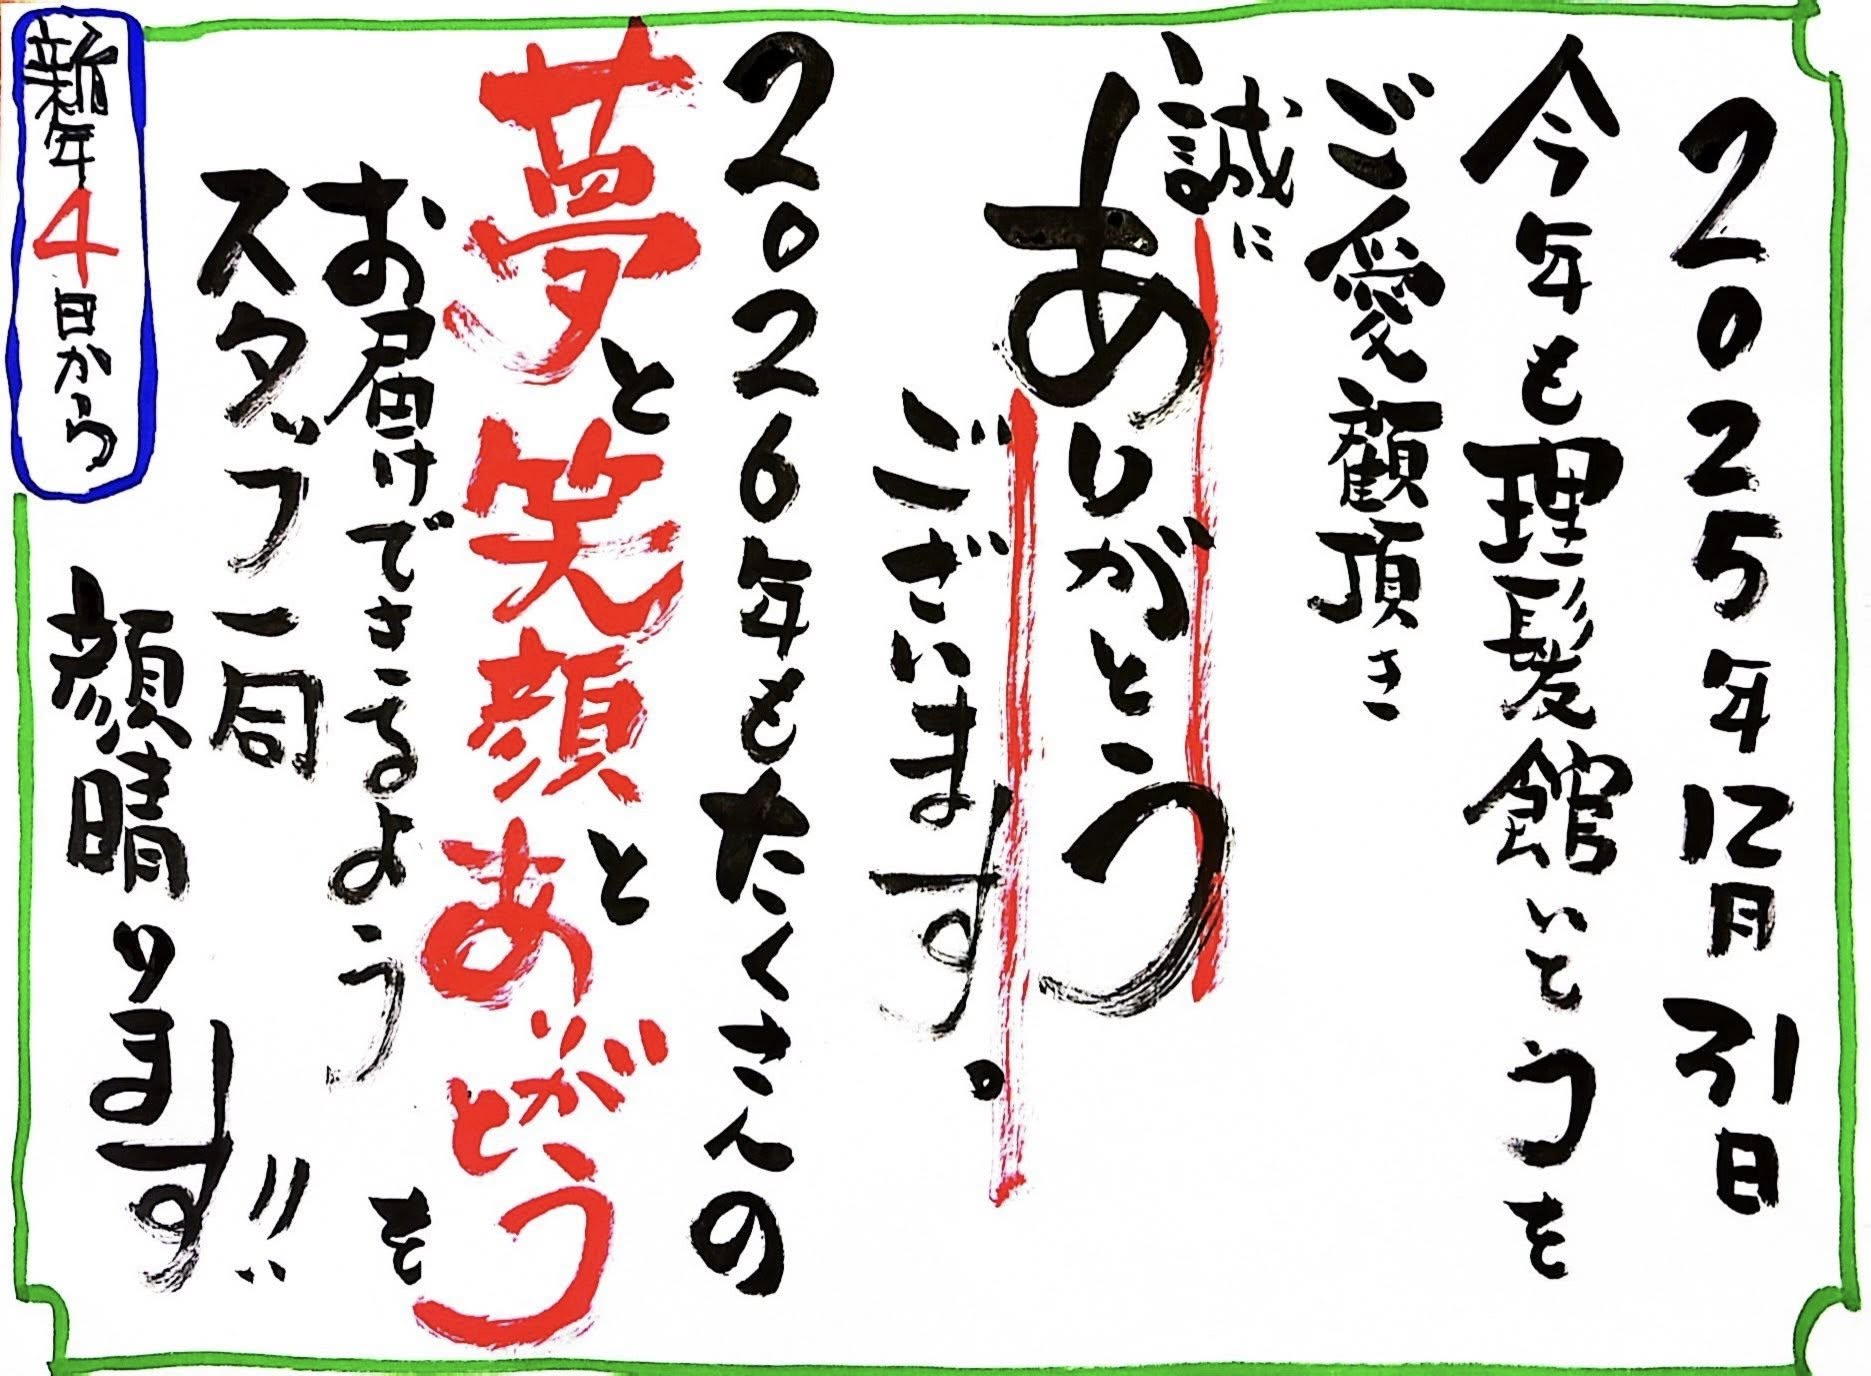 2025年12月31日
今年も理髪館いとうを
ご愛顧頂き
誠に
ありがとう
ございます。
2026年もたくさんの
夢と笑顔とありがとうを
お届けできるよう
スタッフ一同
顔晴ります!!
新年4日から